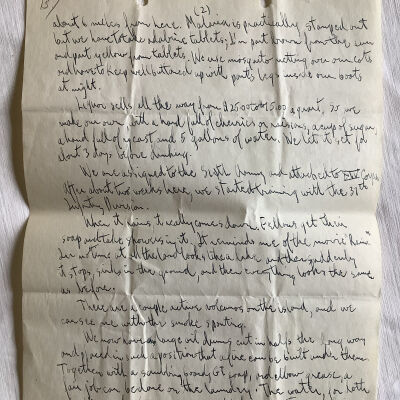 13/ (2).
about 6 miles from here. Malaria is practically stamped out
but we have to take adabrine tablets. I'm part brown from the sun
and part yellow from tablets. We use mosquito netting over our cots
and have to keep well buttoned up with pant's legs inside our boots
at night.
Liquor sells all the way from $25.00 to $50.00 a quart, so we
make our own with a handfull of cherries or raisins, a cup of sugar,
a hand full of yeast and 5 gallons of water. We let it set for
about 3 days before drinking.
We are assigned to the Sixth Army and attached to Corps.
After about two weeks here, we started training with the 31st
Infantry Division.
When it rains, it really comes down. Fellows get their
soap and take showers in it. It reminds me of the movie "Rain"
for no time at all the land looks like a lake and then suddenly
it stops, sinks in the ground, and then everything looks the same
as before.
There are a couple active volcanos on the island, and we
can see one with the smoke spouting.
We now have an oil drum cut in half the long way
and placed in such a position that a fire can be built under them.
Together with a scrubbing board, GI soap, and elbow grease, a
fair job can be done on the laundry. The water, for both